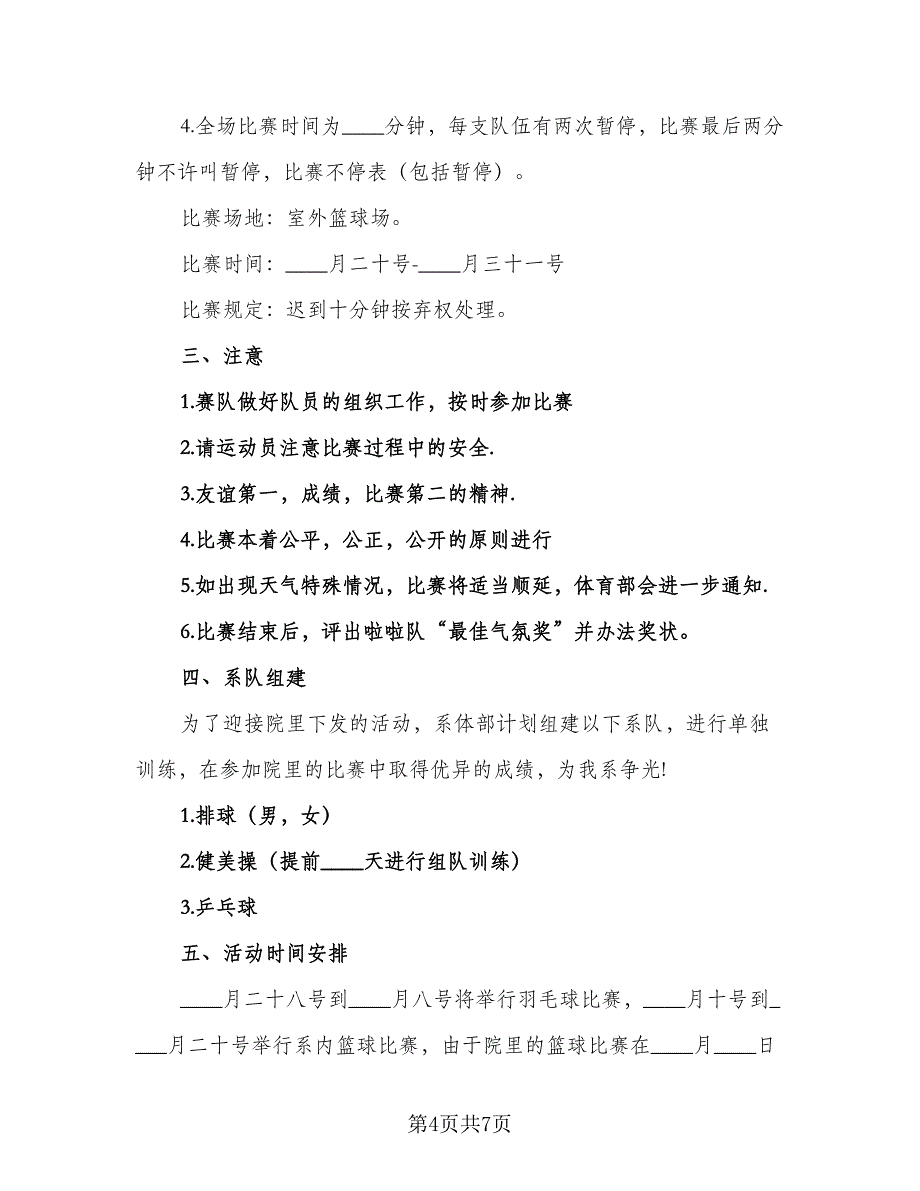 4.全场比赛时间为____分钟，每支队伍有两次暂停，比赛最后两分
钟不许叫暂停，比赛不停表（包括暂停）。
比赛场地：室外篮球场。
比赛时间：____月二十号-____月三十一号
比赛规定：迟到十分钟按弃权处理。
三、注意
1.赛队做好队员的组织工作，按时参加比赛
2.请运动员注意比赛过程中的安全.
3.友谊第一，成绩，比赛第二的精神.
4.比赛本着公平，公正，公开的原则进行
5.如出现天气特殊情况，比赛将适当顺延，体育部会进一步通知.
6.比赛结束后，评出啦啦队“最佳气氛奖”并办法奖状。
四、系队组建
为了迎接院里下发的活动，系体部计划组建以下系队，进行单独
训练，在参加院里的比赛中取得优异的成绩，为我系争光!
1.排球（男，女）
2.健美操（提前____天进行组队训练）
3.乒乓球
五、活动时间安排
____月二十八号到____月八号将举行羽毛球比赛，____月十号到_
___月二十号举行系内篮球比赛，由于院里的篮球比赛在____月____日
第4页共7页